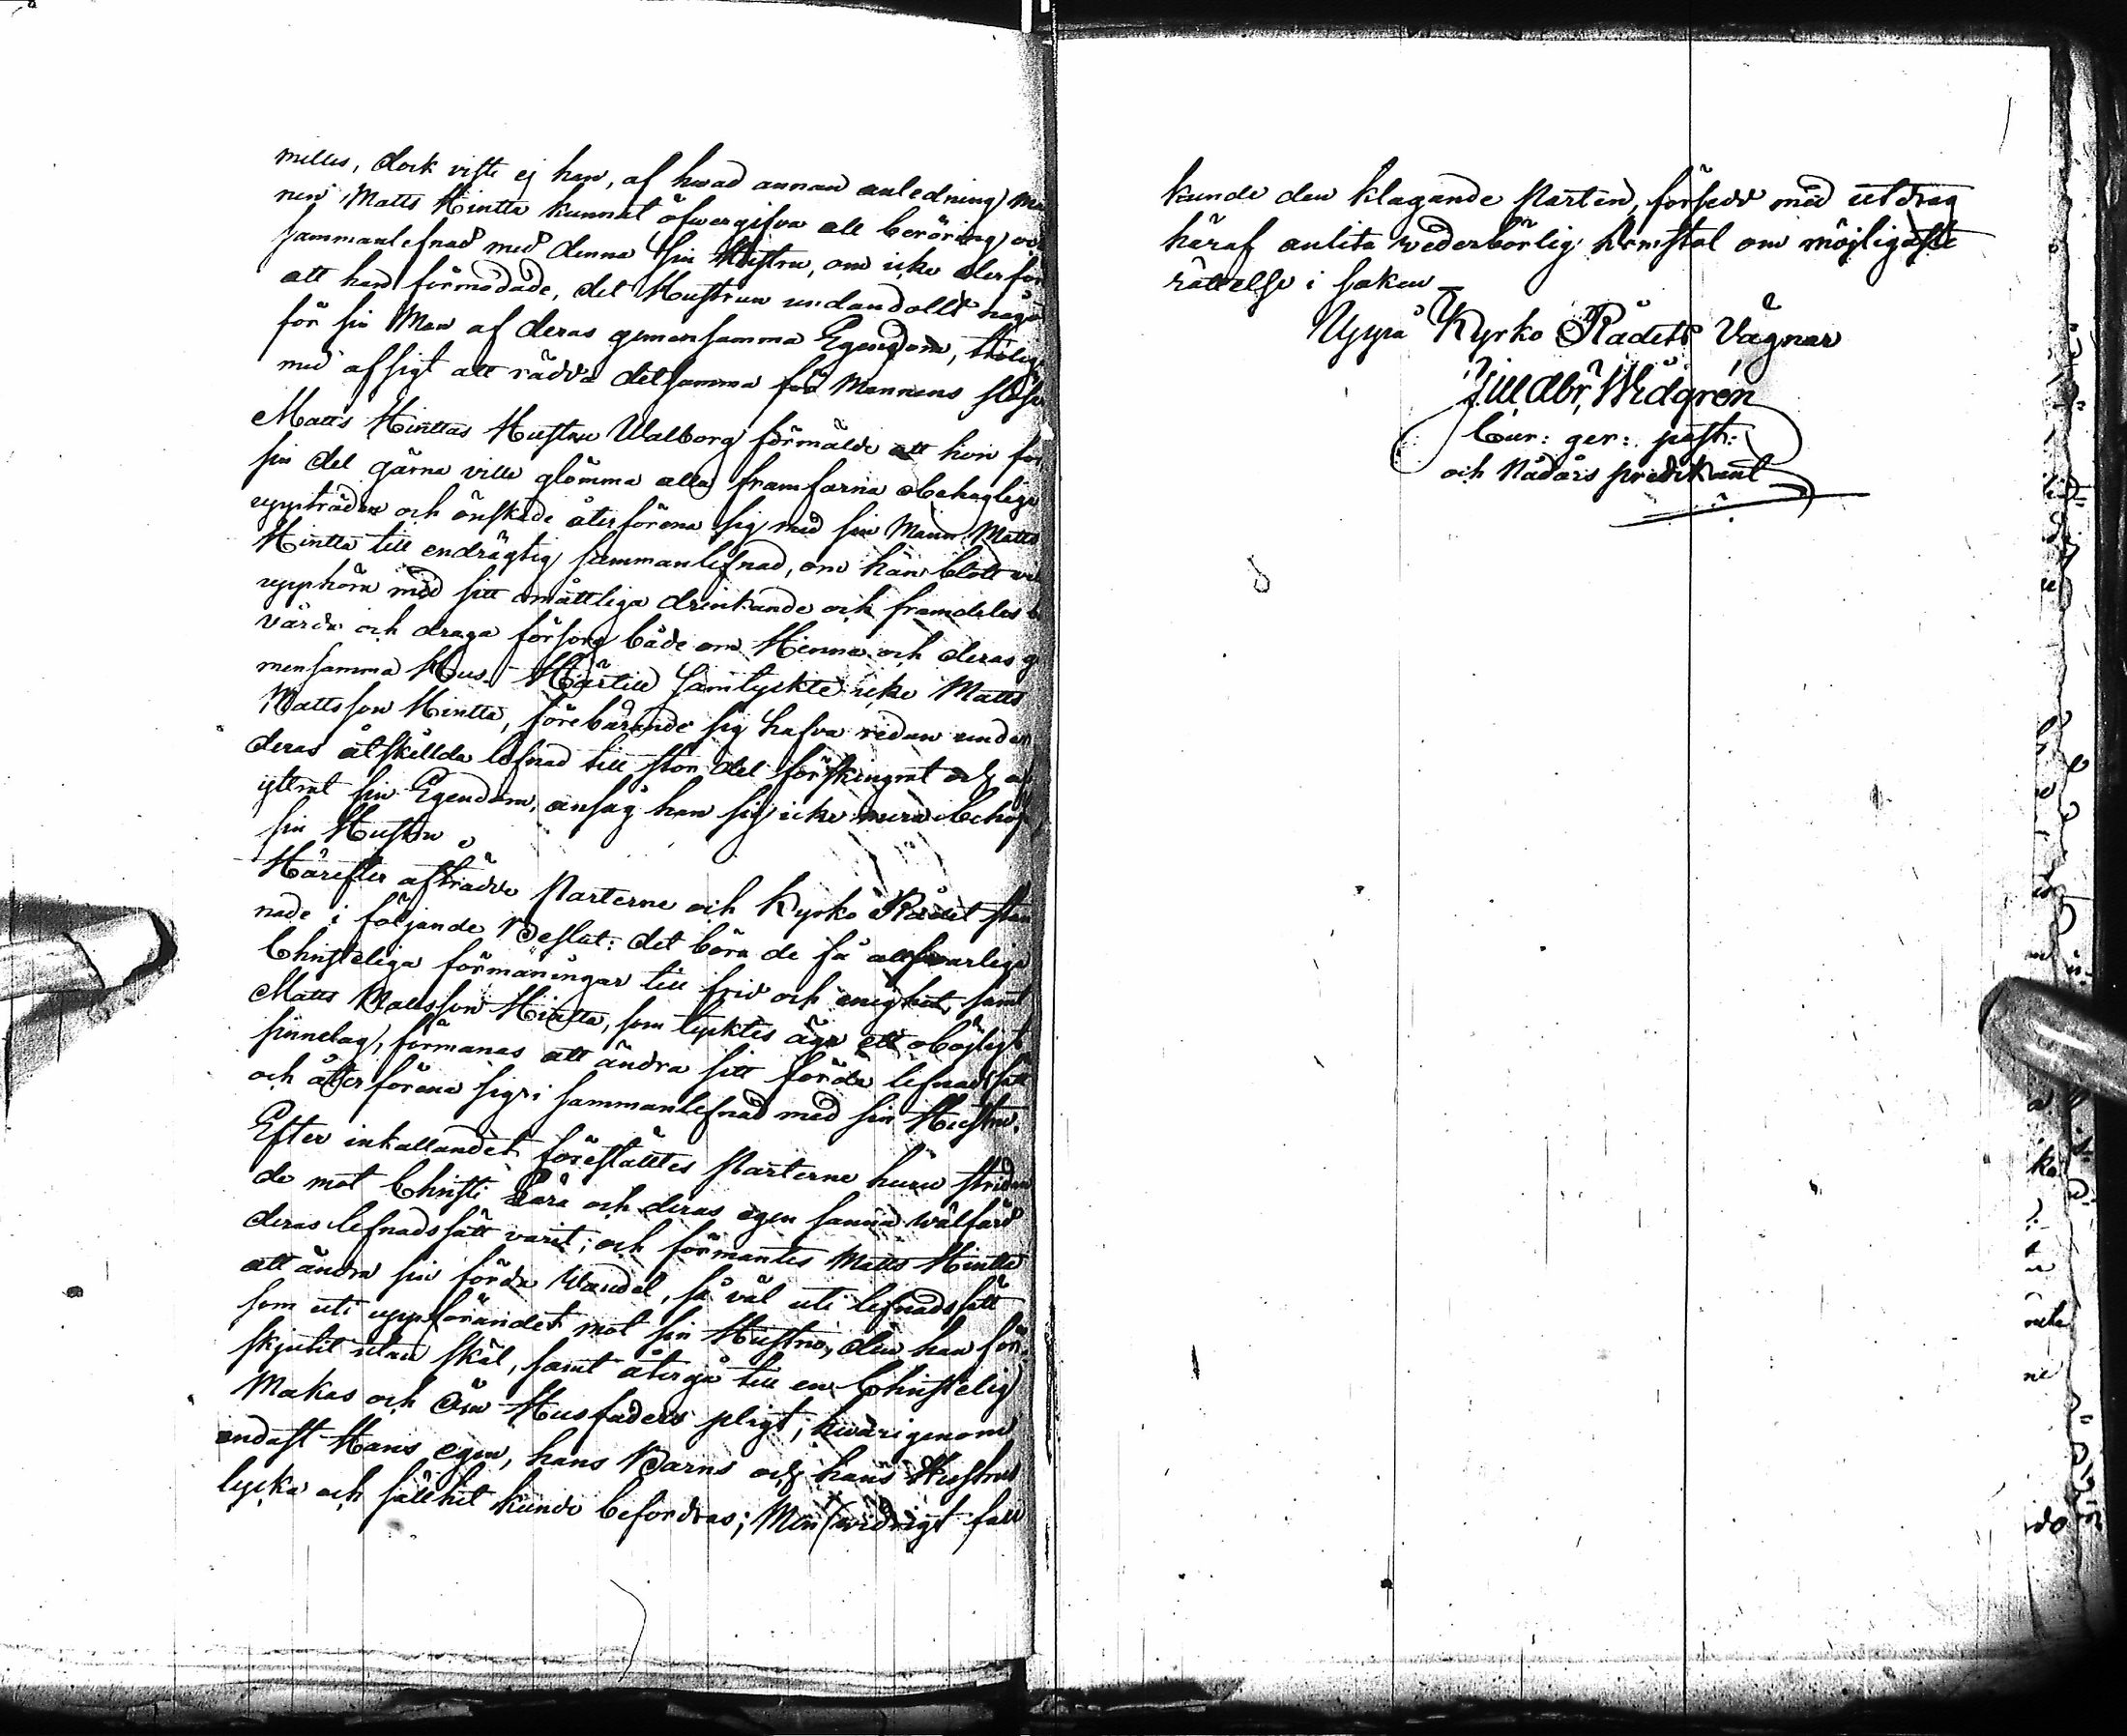 melles, dock viste ej han, af hwad annan anledning Ma
nen Matts Hintta kunnat öfwergifva all beröring oc
sammanlefnad med denna sin Hustru, om icke derför
att han förmodade, det Hustrun undandollt någo
för sin Man af deras gemensamma Egendom,
med afsigt att rädda detsamma för Mannens slöse
Matts Hinttas Hustru Walborg förmälde att hon för
sin del gärna ville glömma alla framfarna obehaglige
uppträden och önskade återförena sig med sin Mann Matts
Hintta till endrägtig sammanlefnad, om han blott wil
upphöra med sitt omåttliga drinkande och framdeles
vårda och draga försorg både om Henne och deras ge
mensamma Hus. Härtill samtyckte icke Matts
Mattsson Hintta, förebärande sig hafva redan under
deras åtskillda lefnad till stor del förskingrat och af
yttrat sin Egendom, ansåg han sig icke mera behöf
sin Hustru.
Härefter afträdde Parterne och Kyrko Rådet stan
nade i följande Beslut: det böra de få allfwarlige
Christeliga förmaningar till frid och enighet, samt
Matts Mattsson Hintta, som tycktes äga ett obögligt
sinnelag, förmanas att ändra sitt förda lefnadssätt
och återförena sig i sammanlefnad med sin Hustru.
Efter inkallandet föreställtes Parterne huru stridan
de mot Christi Lära och deras egen sanna wälfärd
deras lefnadssätt varit; och förmantes Matts Hintta
att ändra sin förda Wandel, så väl uti lefnadssätt
som uti uppförandet mot sin Hustru, den han för-
skjutit utan skäl, samt återgå till en Christelig
Makas och Öm Husfaders pligt; hwarigenom
endast Hans egen, hans Barns och hans Hustrus
lycka och sällhet kunde befordras; Men widrigt fall
kunde den klagande Parten, försedd med utdrag
häraf anlita wederbörlig Domstol om möjligaste
rättelse i saken –
Uppå Kyrko Rådets Vägnar
Abr. Widgrén
Cur: ger: past:
och Nådårs predikant